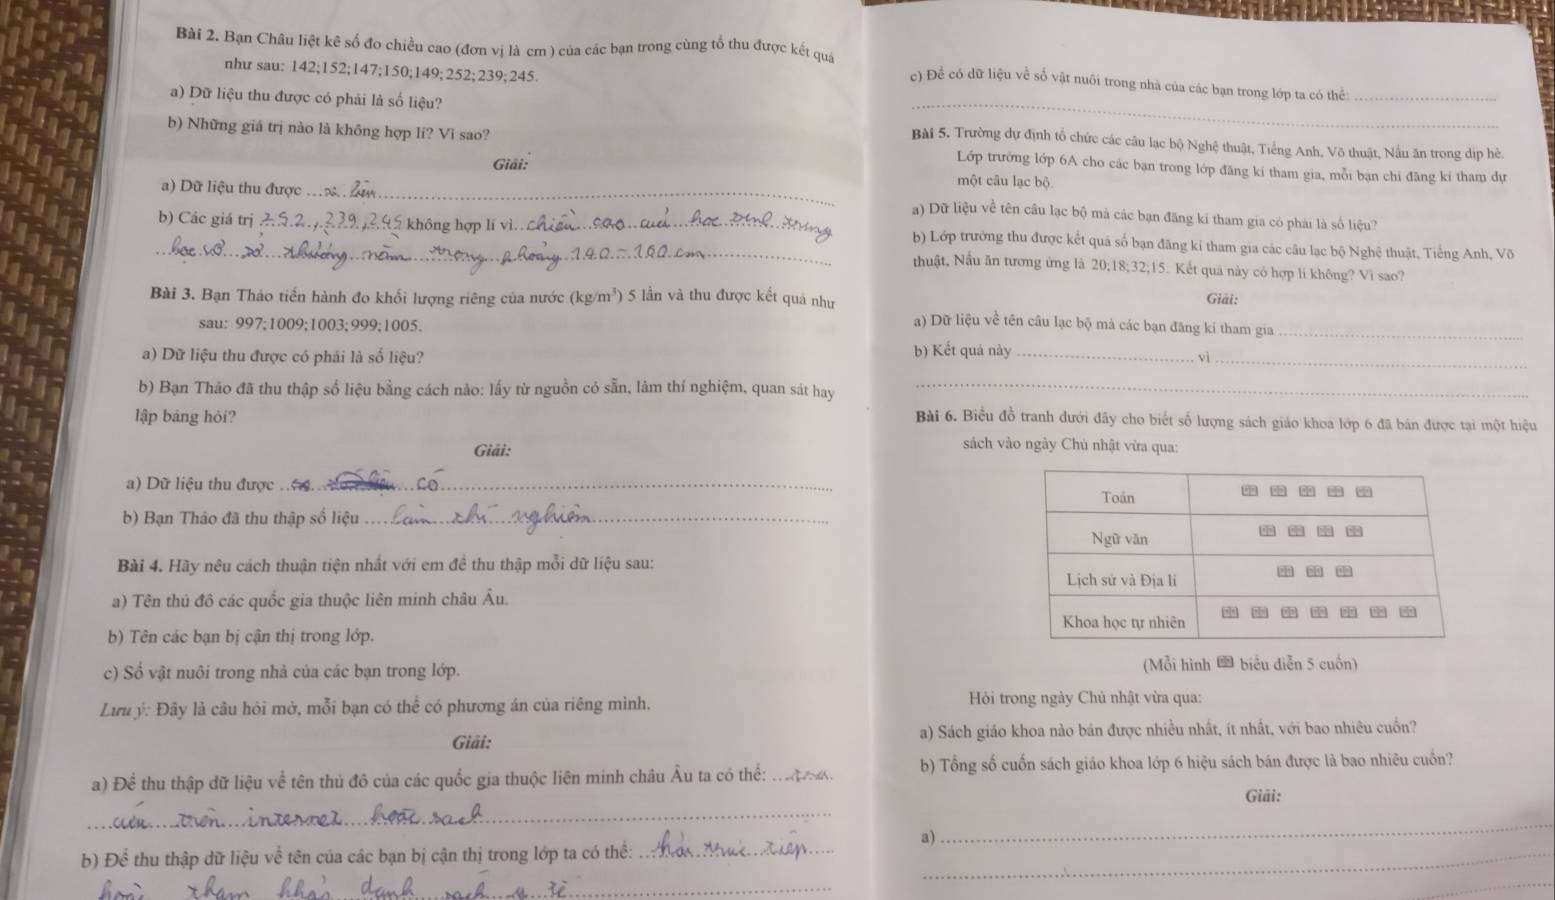 Bài 2. Bạn Châu liệt kê số đo chiều cao (đơn vị là cm ) của các bạn trong cùng tổ thu được kết quả
như sau: 142;152;147;150;149;252;239;245.
a) Dữ liệu thu được có phải là số liệu?
b) Những giá trị nào là không hợp lí? Vì sao?
Giải:
a) Dữ liệu thu được
b) Các giá trị 252, 239, 245 không hợp lí vì chiều cao của học sinh trung
học sơ sở thường nằm trong khoảng 140 - 160 cm
Bài 3. Bạn Thảo tiến hành đo khối lượng riêng của nước (kg/m³) 5 lần và thu được kết quả như
sau: 997;1009;1003;999;1005.
a) Dữ liệu thu được có phải là số liệu?
b) Bạn Thảo đã thu thập số liệu bằng cách nào: lấy từ nguồn có sẵn, làm thí nghiệm, quan sát hay
lập bảng hỏi?
Giải:
a) Dữ liệu thu được có
b) Bạn Thảo đã thu thập số liệu làm thí nghiệm
Bài 4. Hãy nêu cách thuận tiện nhất với em để thu thập mỗi dữ liệu sau:
a) Tên thủ đô các quốc gia thuộc liên minh châu Âu.
b) Tên các bạn bị cận thị trong lớp.
c) Số vật nuôi trong nhà của các bạn trong lớp.
Lưu ý: Đây là câu hỏi mở, mỗi bạn có thể có phương án của riêng mình.
Giải:
a) Để thu thập dữ liệu về tên thủ đô của các quốc gia thuộc liên minh châu Âu ta có thể: tra
cứu trên internet hoặc sách
b) Để thu thập dữ liệu về tên của các bạn bị cận thị trong lớp ta có thể: hỏi trực tiếp
hoặc tham khảo danh sách y tế
c) Để có dữ liệu về số vật nuôi trong nhà của các bạn trong lớp ta có thể:
Bài 5. Trường dự định tổ chức các câu lạc bộ Nghệ thuật, Tiếng Anh, Võ thuật, Nấu ăn trong dịp hè.
Lớp trưởng lớp 6A cho các bạn trong lớp đăng kí tham gia, mỗi bạn chỉ đăng kí tham dự
một câu lạc bộ.
a) Dữ liệu về tên câu lạc bộ mà các bạn đăng kí tham gia có phải là số liệu?
b) Lớp trưởng thu được kết quả số bạn đăng kí tham gia các câu lạc bộ Nghệ thuật, Tiếng Anh, Võ
thuật, Nấu ăn tương ứng là 20;18;32;15. Kết quả này có hợp lí không? Vì sao?
Giải:
a) Dữ liệu về tên câu lạc bộ mà các bạn đăng kí tham gia
b) Kết quả này vì
Bài 6. Biểu đồ tranh dưới đây cho biết số lượng sách giáo khoa lớp 6 đã bán được tại một hiệu
sách vào ngày Chủ nhật vừa qua:
Toán
Ngữ văn
Lịch sử và Địa lí
Khoa học tự nhiên
(Mỗi hình biểu diễn 5 cuốn)
Hỏi trong ngày Chủ nhật vừa qua:
a) Sách giáo khoa nào bán được nhiều nhất, ít nhất, với bao nhiêu cuốn?
b) Tổng số cuốn sách giáo khoa lớp 6 hiệu sách bán được là bao nhiêu cuốn?
Giải:
a)